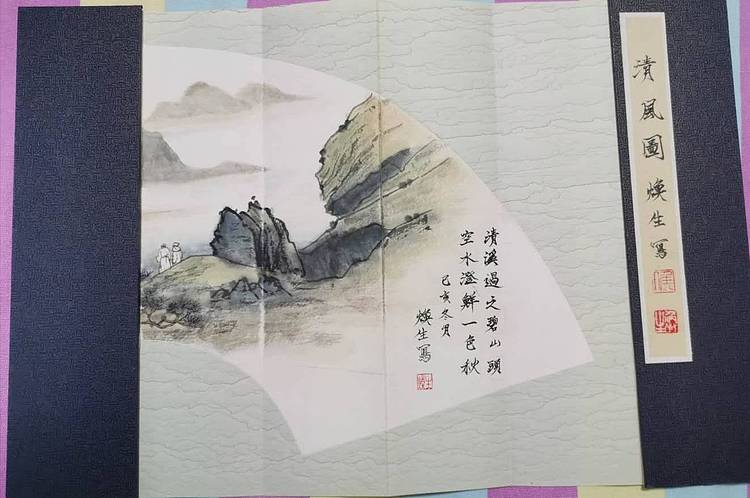 清風圖 煥生寫
清溪過之碧山頭
空水澄鮮一色秋
己亥冬月
煥生寫